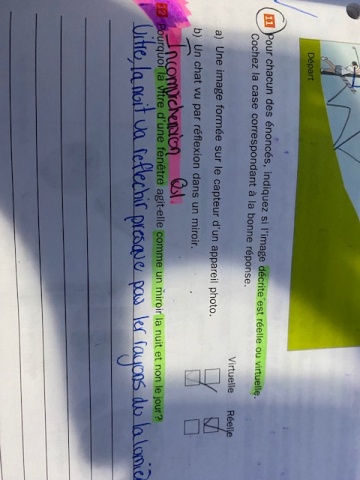 Départ
11 Pour chacun des énoncés, indiquez si l'image décrite est réelle ou virtuelle.
Cochez la case correspondant à la bonne réponse.
Virtuelle Réelle
a) Une image formée sur le capteur d'un appareil photo.
b) Un chat vu par réflexion dans un miroir.
Incompréhension
12 Pourquoi la vitre d'une fenêtre agit-elle comme un miroir la nuit et non le jour?
Vitre, la noit va reflechir presque pas les rayons du la lumiè